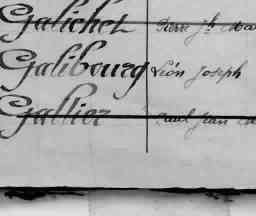 Galichet Pierre Jh
Galibourg Léon Joseph
Gallier Paul Jean